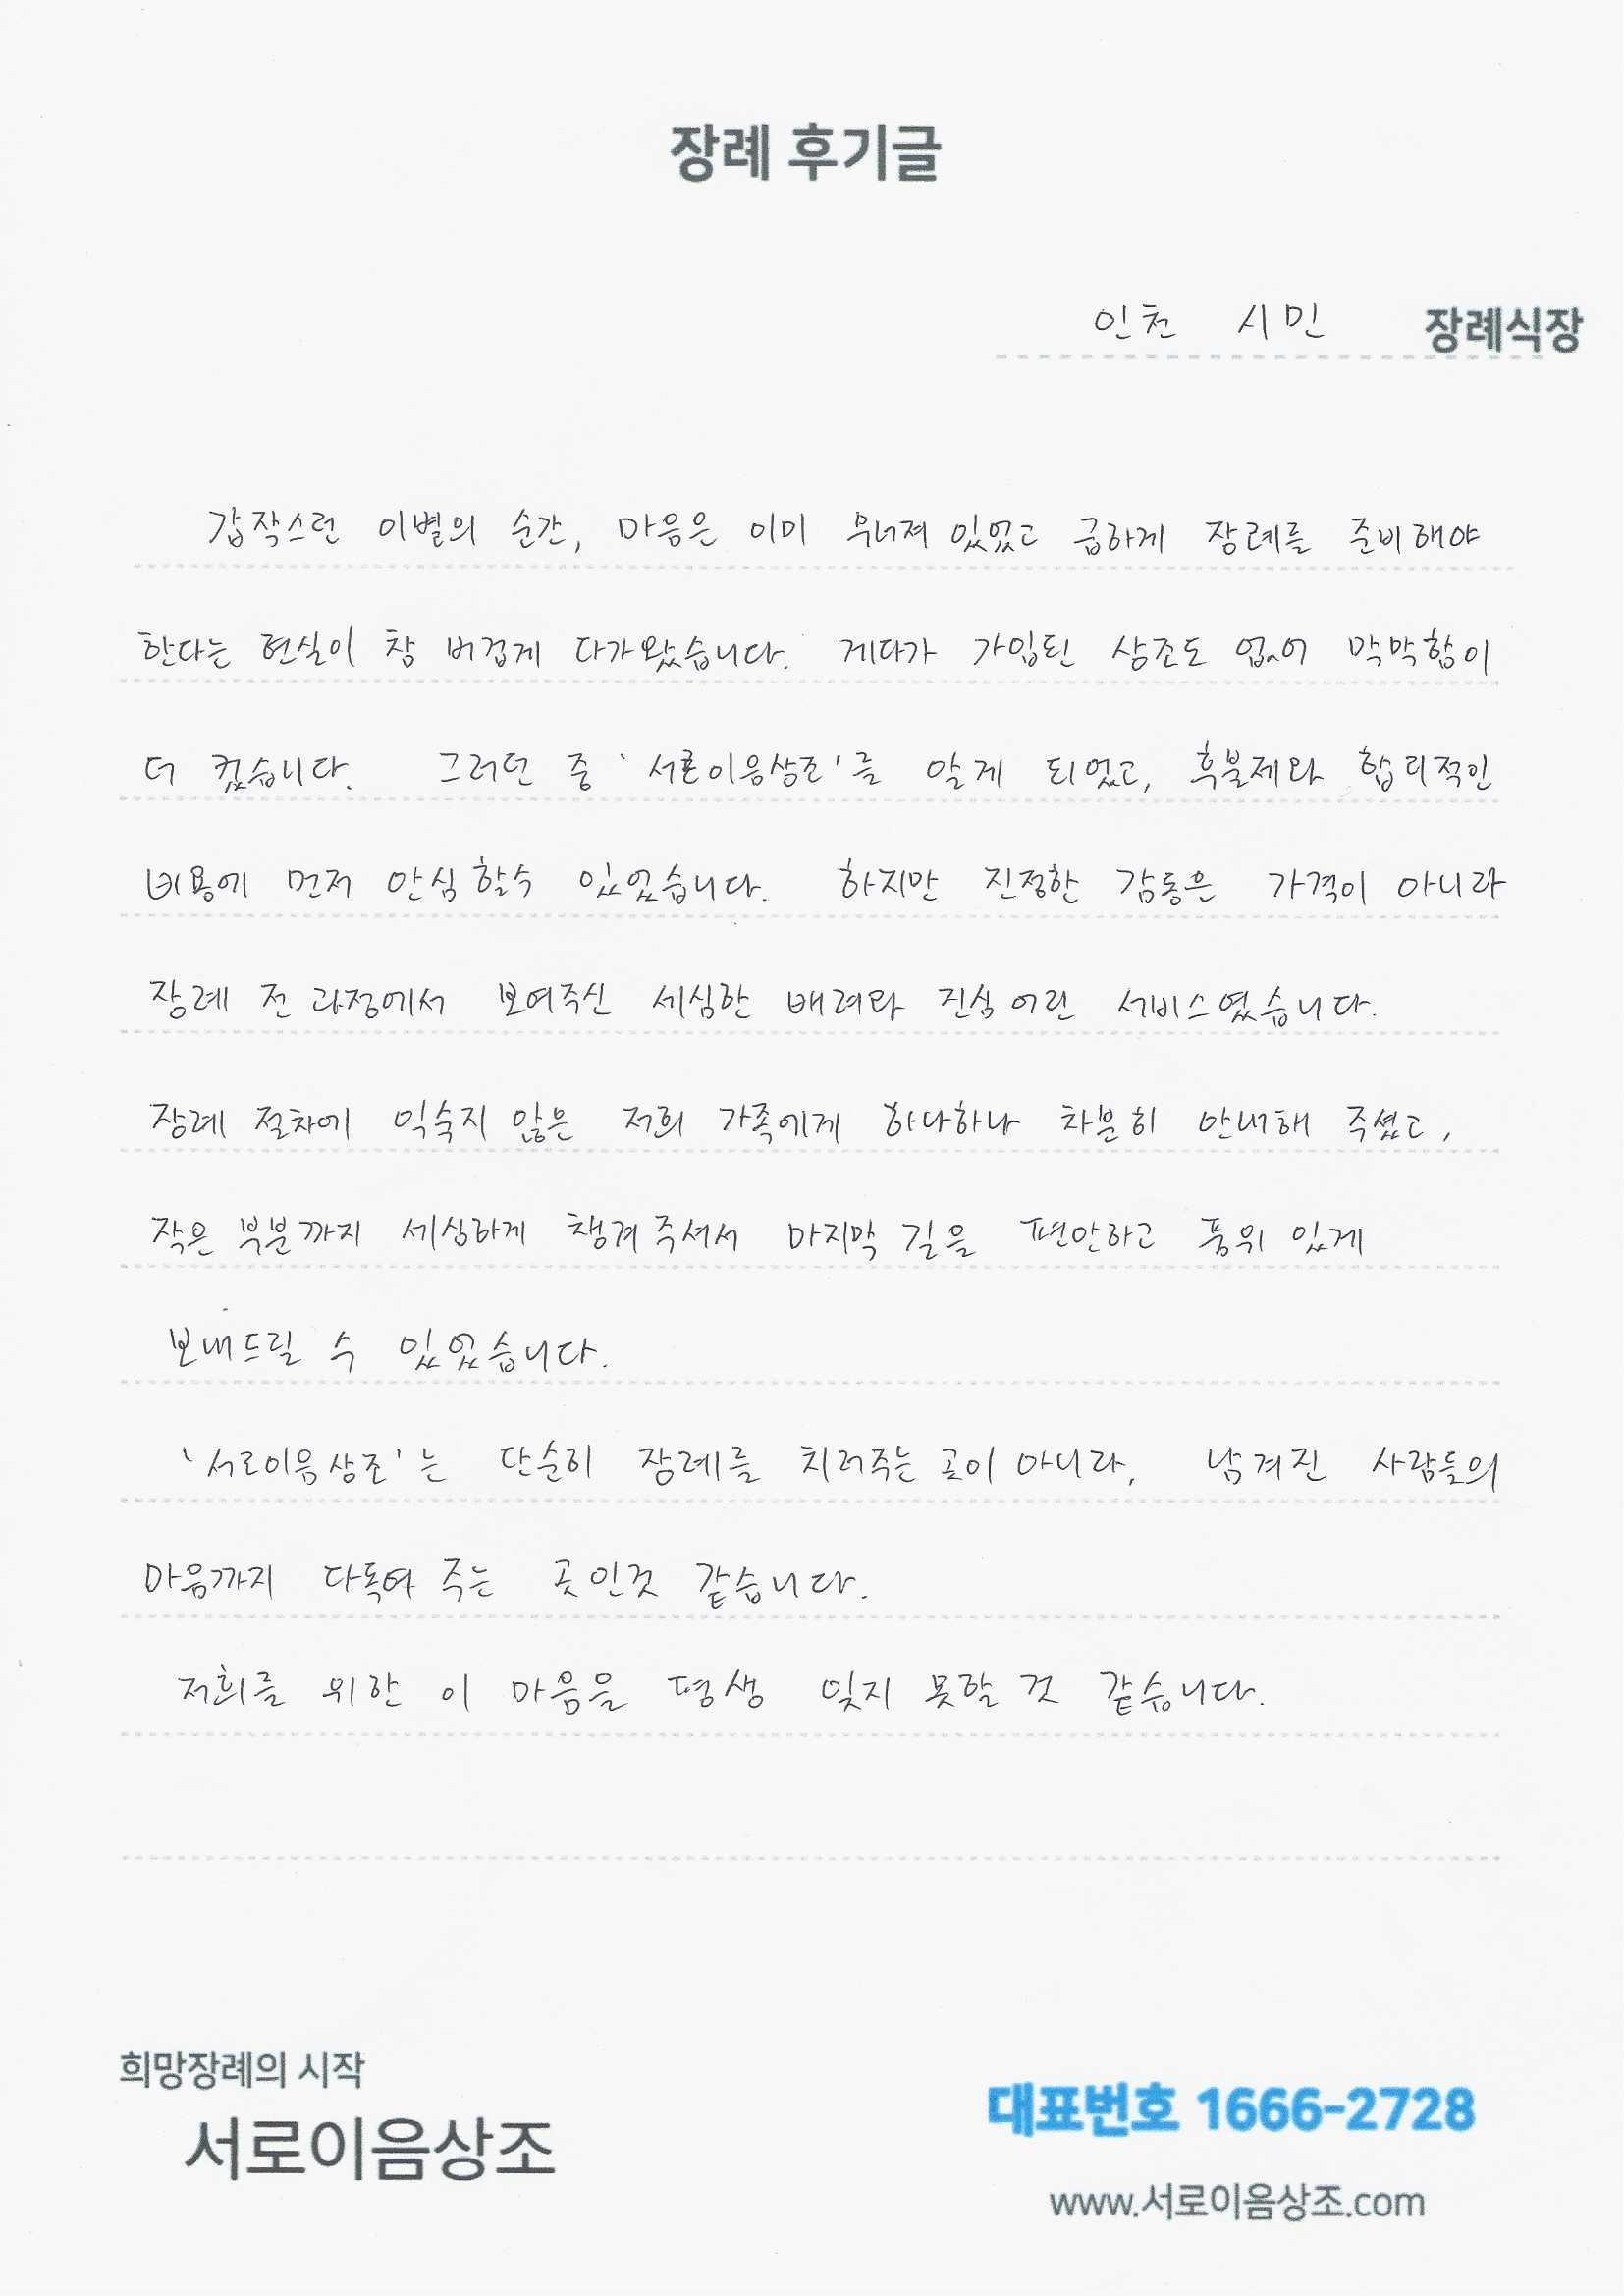 장례 후기글
인천 시민 장례식장
갑작스런 이별의 순간, 마음은 이미 무너져 있었고 급하게 장례를 준비해야
한다는 현실이 참 버겁게 다가왔습니다. 게다가 가입된 상조도 없어 막막함이
더 컸습니다. 그러던 중 '서로이음상조'를 알게 되었고, 후불제와 합리적인
비용에 먼저 안심 할수 있었습니다. 하지만 진정한 감동은 가격이 아니라
장례 전 과정에서 보여주신 세심한 배려와 진심 어린 서비스였습니다.
장례 절차에 익숙지 않은 저희 가족에게 하나하나 차분히 안내해 주셨고,
작은 부분까지 세심하게 챙겨주셔서 마지막 길을 편안하고 품위 있게
보내드릴 수 있었습니다.
'서로이음상조'는 단순히 장례를 치러주는 곳이 아니라, 남겨진 사람들의
마음까지 다독여 주는 곳인것 같습니다.
저희를 위한 이 마음을 평생 잊지 못할 것 같습니다.
희망장례의 시작
서로이음상조
대표번호 1666-2728
www.서로이음상조.com